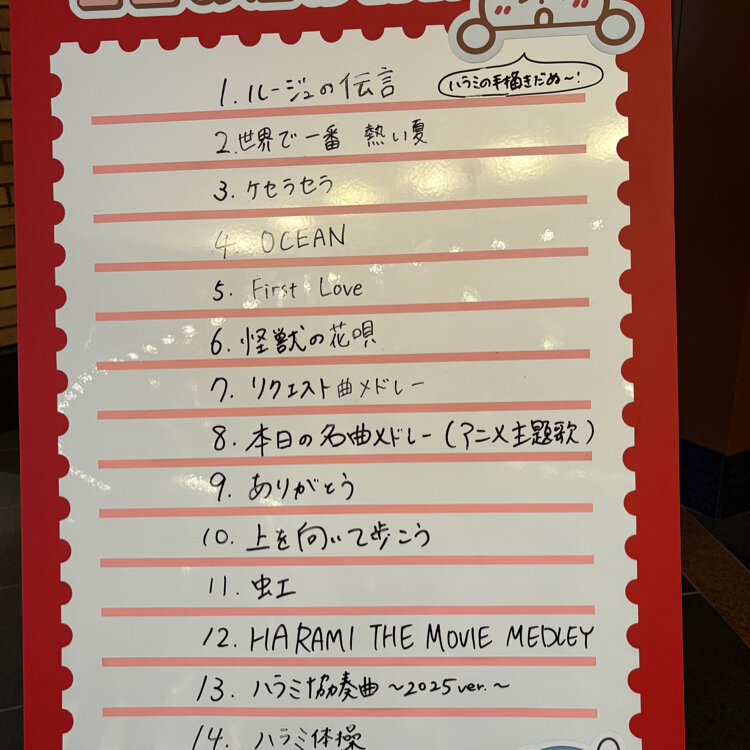 ハラミの手描きだぬ〜!
1. ルージュの伝言
2. 世界で一番 熱い夏
3. ケセラセラ
4. OCEAN
5. First Love
6. 怪獣の花唄
7. リクエスト曲メドレー
8. 本日の名曲メドレー(アニメ主題歌)
9. ありがとう
10. 上を向いて歩こう
11. 虹
12. HARAMI THE MOVIE MEDLEY
13. ハラミ協奏曲 〜2025 ver.〜
14. ハラミ体操